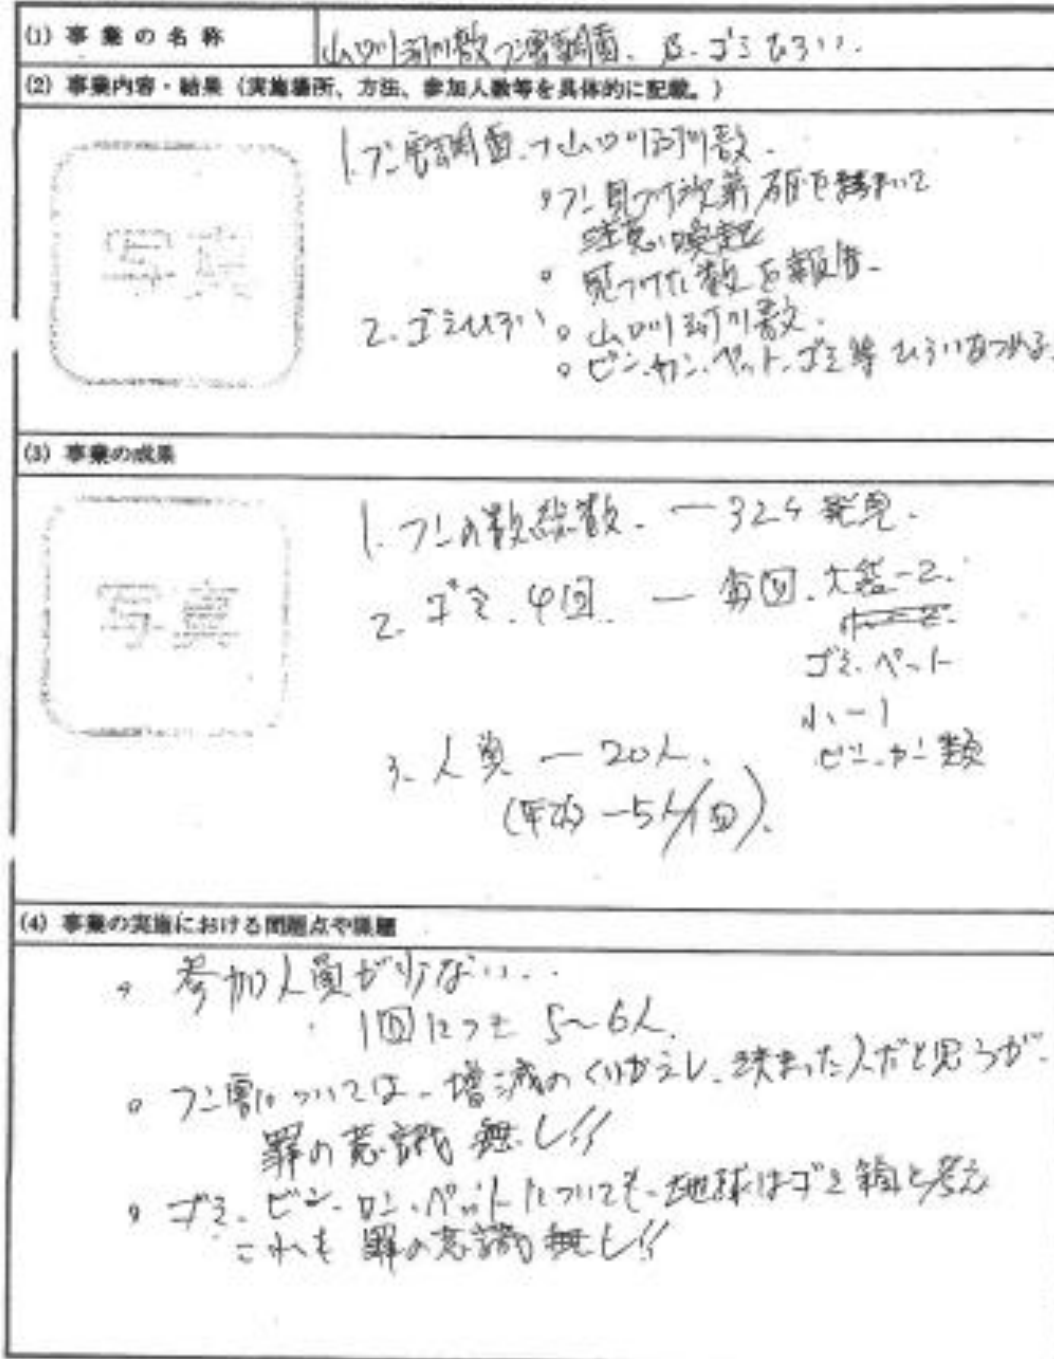 (1) 事業の名称
山口川河川敷フン害調査. 及. ゴミひろい.
(2) 事業内容・結果（実施場所、方法、参加人数等を具体的に記載。）
写真
1. フン害調査. → 山口川河川敷.
○フン見つけ次第 石灰を
注意喚起
○ 見つけた数を報告.
2. ゴミひろい ○ 山口川河川敷.
○ ビン.カン.ペット.ゴミ等 ひろいあつめる.
(3) 事業の成果
写真
1. フンの数総数. ー 324 発見.
2. ゴミ. 4回. ー 毎回. 大袋ー2.
ゴミ. ペット
小ー1
ビン.カン類
3. 人員 ー 20人.
(平均 ー5人/1回).
(4) 事業の実施における問題点や課題
○ 参加人員が少ない..
・ 1回につき 5〜6人.
○ フン害については. 増減のくりかえし. 決まった人だと思うが.
罪の意識 無し!!
○ ゴミ. ビン. カン. ペットについても. 地球はゴミ箱と考え
これも 罪の意識 無し!!